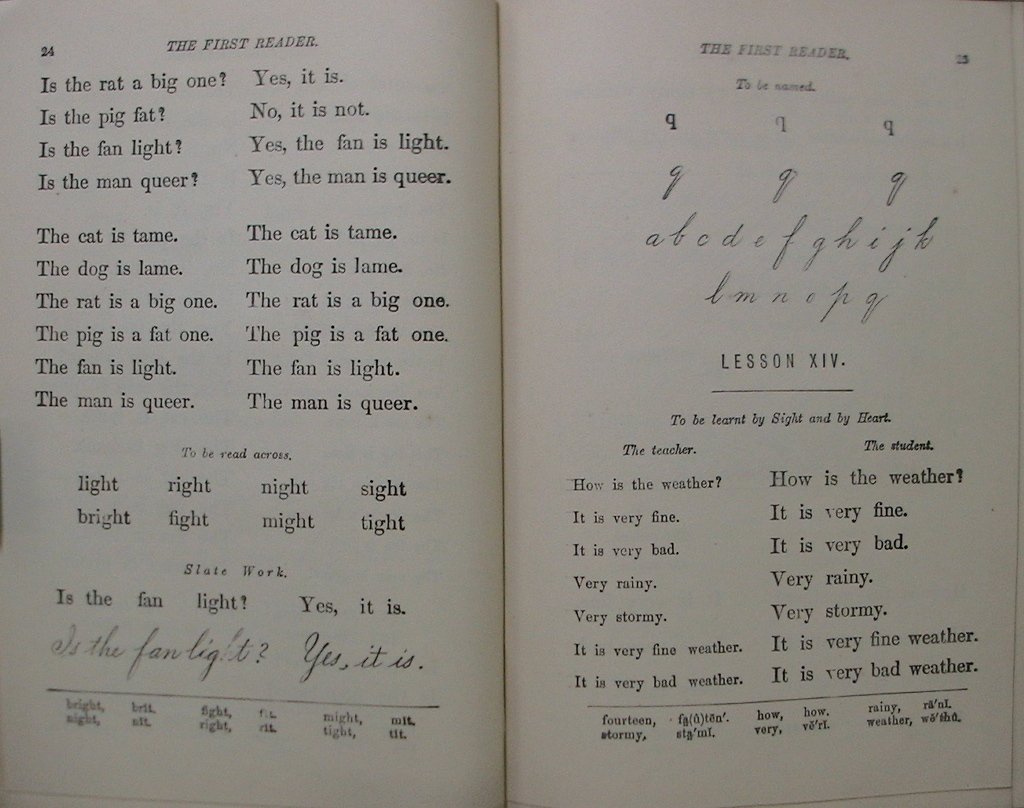 24 THE FIRST READER.
Is the rat a big one? Yes, it is.
Is the pig fat? No, it is not.
Is the fan light? Yes, the fan is light.
Is the man queer? Yes, the man is queer.
The cat is tame. The cat is tame.
The dog is lame. The dog is lame.
The rat is a big one. The rat is a big one.
The pig is a fat one. The pig is a fat one.
The fan is light. The fan is light.
The man is queer. The man is queer.
To be read across.
light right night sight
bright fight might tight
Slate Work.
Is the fan light? Yes, it is.
Is the fan light? Yes, it is.
bright, brit. fight, might, mit.
night, nit. right, rit. tight, tit.
THE FIRST READER.
To be named.
q q q
q q q
a b c d e f g h i j k
l m n o p q
LESSON XIV.
To be learnt by Sight and by Heart.
The teacher. The student.
How is the weather? How is the weather?
It is very fine. It is very fine.
It is very bad. It is very bad.
Very rainy. Very rainy.
Very stormy. Very stormy.
It is very fine weather. It is very fine weather.
It is very bad weather. It is very bad weather.
fourteen, how, how. rainy, rā'nĭ.
stormy, very, vĕ'rĭ. weather,